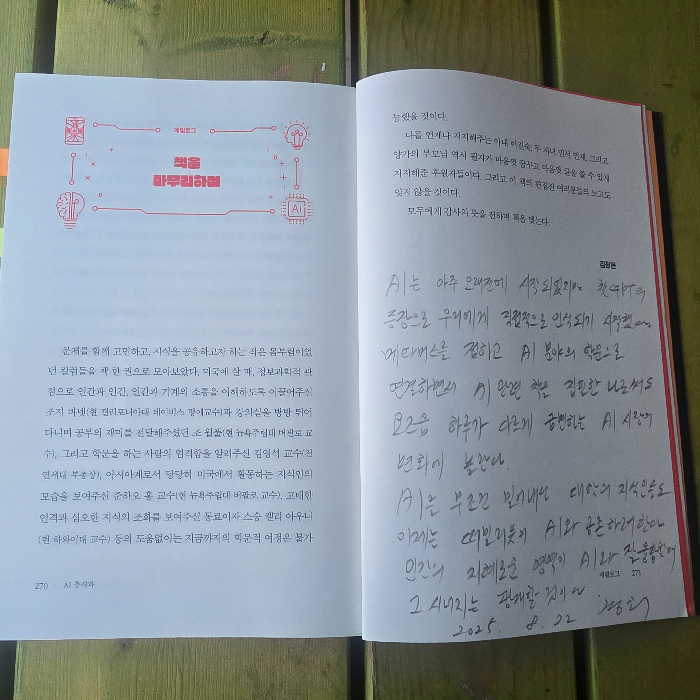 에필로그
책을
마무리하며
문제를 함께 고민하고, 지식을 공유하고자 하는 작은 몸부림이었
던 칼럼들을 책 한 권으로 모아보았다. 미국에 살 때, 정보과학적 관
점으로 인간과 인간, 인간과 기계의 소통을 이해하도록 이끌어주신
조지 바넷(현 캘리포니아대 데이비스 명예교수)과 강의실을 방방 뛰어
다니며 공부의 재미를 전달해주셨던 조 울펠(현 뉴욕주립대 버팔로 교
수), 그리고 학문을 하는 사람의 엄격함을 알려주신 김영석 교수(전
연세대 부총장), 아시아계로서 당당히 미국에서 활동하는 지식인의
모습을 보여주신 준하오 홍 교수(현 뉴욕주립대 버팔로 교수), 고매한
인격과 심오한 지식의 조화를 보여주신 동료이자 스승 켈리 아우니
(현 하와이대 교수) 등의 도움없이는 지금까지의 학문적 여정은 불가
270 AI 충격파
능했을 것이다.
나를 언제나 지지해주는 아내 이진숙, 두 자녀 민서 민재, 그리고
양가의 부모님 역시 필자가 마음껏 꿈꾸고 마음껏 글을 쓸 수 있게
지지해준 후원자들이다. 그리고 이 책의 편집진 여러분들의 노고도
잊지 않을 것이다.
모두에게 감사의 뜻을 전하며 책을 맺는다.
김장현
AI는 아주 오래전에 시작되었지만 챗GPT의
등장으로 우리에게 직접적으로 인식되기 시작했다.
메타버스를 접하고 AI 분야의 학문으로
연결하면서 AI 관련 책을 집필한 나로서도
요즈음 하루가 다르게 급변하는 AI 시장의
변화에 놀란다.
AI을 무조건 밀어내던 대학의 지식인들도
이제는 떠밀리듯이 AI와 공존하려한다
인간의 지혜로운 영역이 AI와 잘 융합한다면
그 시너지는 굉장할 것이다
에필로그 271
2025. 8. 22